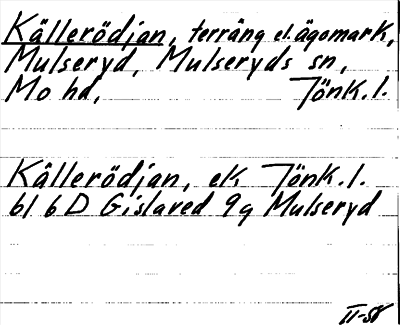 Källerödjan, terräng el. ägomark,
Mulseryd, Mulseryds sn,
Mo hd, Jönk. l.
Källerödjan, ek, Jönk. l.
bl 6 D Gislaved 9g Mulseryd
II-58